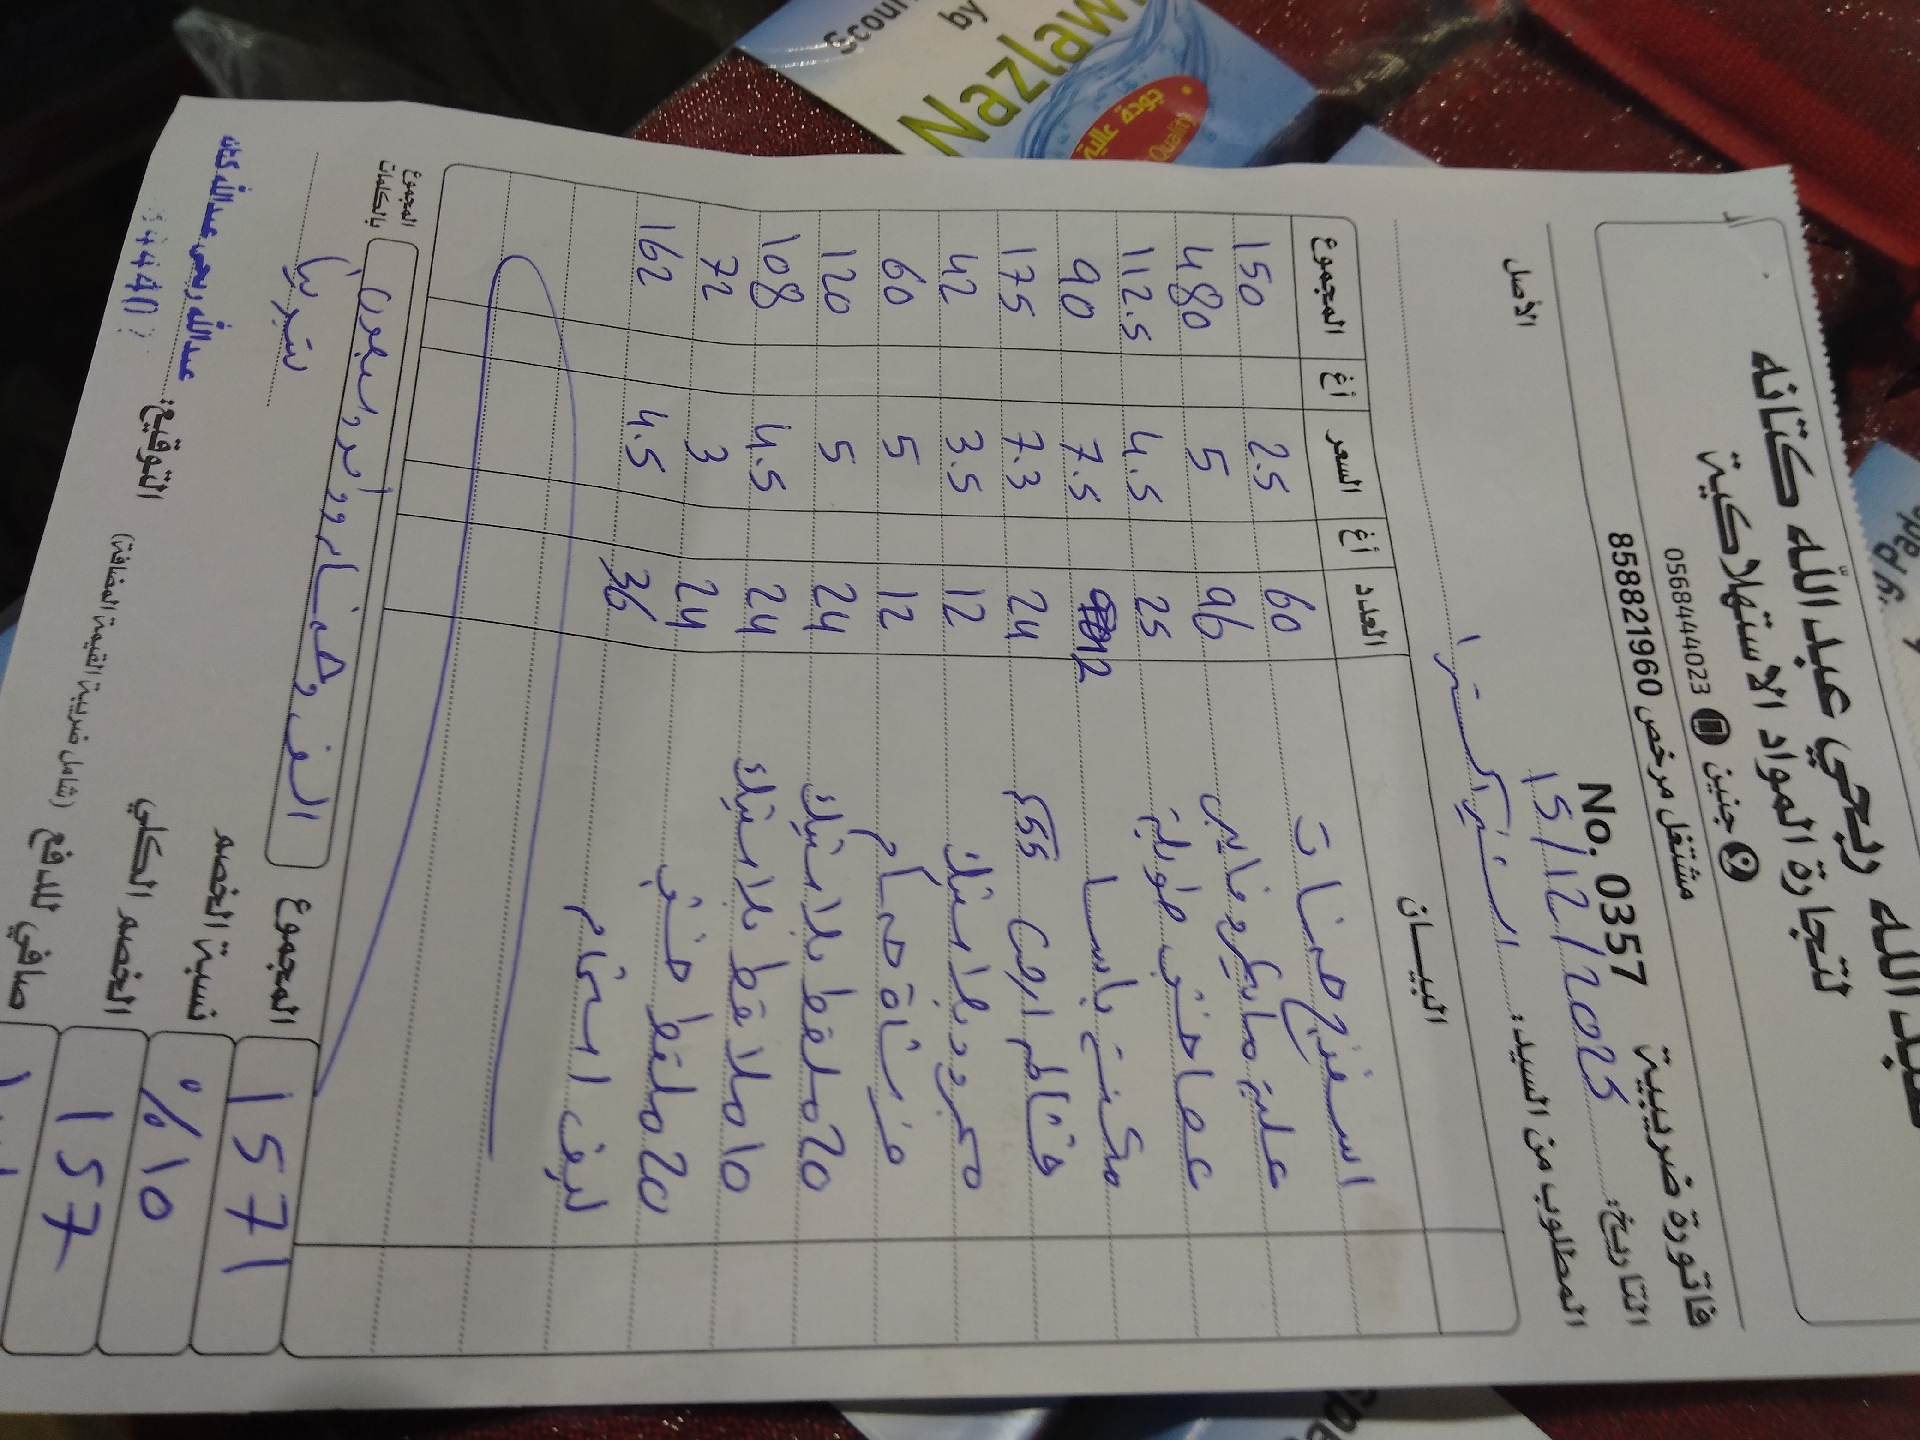 عبد الله
عبد الله ربحي عبد الله كتانه
لتجارة المواد الاستهلاكية
جنين 0568444023
مشتغل مرخص 858821960
فاتورة ضريبية No. 0357
التاريخ: 15/12/2025
المطلوب من السيد:
الأصل
البيـــان العدد أغ السعر أغ المجموع
اسفنج 60 2.5 150
علبة مايكروفايبر 96 5 480
عصا خشب طويلة 25 4.5 112.5
12 7.5 90
24 7.3 175
مجرود بلاستيك 12 3.5 42
فرشاة حمام 12 5 60
20 ملقط بلاستيك 24 5 120
10 ملاقط بلاستيك 24 4.5 108
20 ملقط خشب 24 3 72
ليف استحمام 36 4.5 162
المجموع 1571
المجموع بالكلمات
نسبة الخصم %10
الخصم الكلي 157
صافي للدفع (شامل ضريبة القيمة المضافة)
التوقيع:
عبدالله ربحي عبدالله كتانه
Scour
by
Nazlawi
جودة عالية
Quality